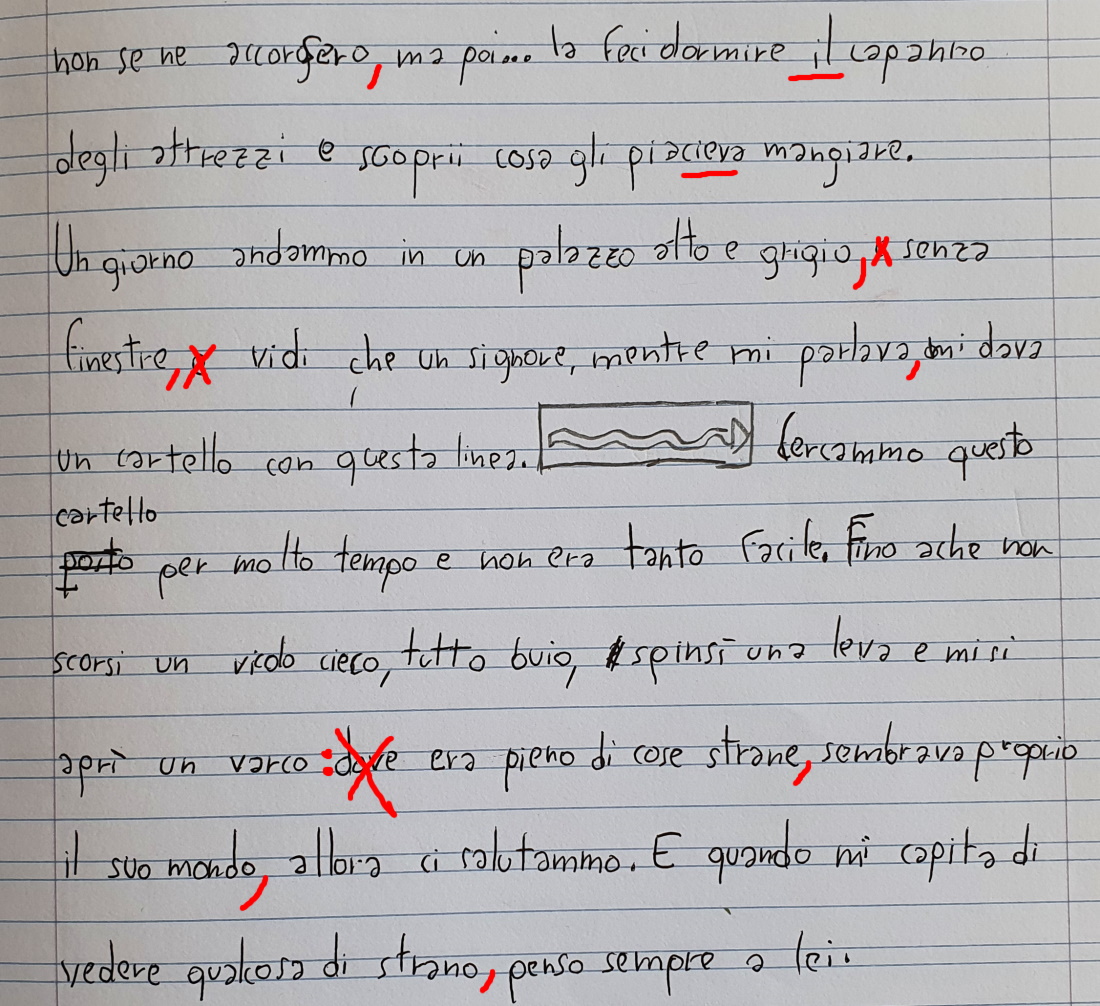 non se ne accorsero, ma poi... la feci dormire il capanno
degli attrezzi e scoprii cosa gli piacieva mangiare.
Un giorno andammo in un palazzo alto e grigio, senza
finestre, vidi che un signore, mentre mi parlava, mi dava
un cartello con questa linea. Cercammo questo
cartello
posto per molto tempo e non era tanto facile. Fino ache non
scorsi un vicolo cieco, tutto buio, spinsi una leva e mi si
aprì un varco: dove era pieno di cose strane, sembrava proprio
il suo mondo, allora ci salutammo. E quando mi capita di
vedere qualcosa di strano, penso sempre a lei.